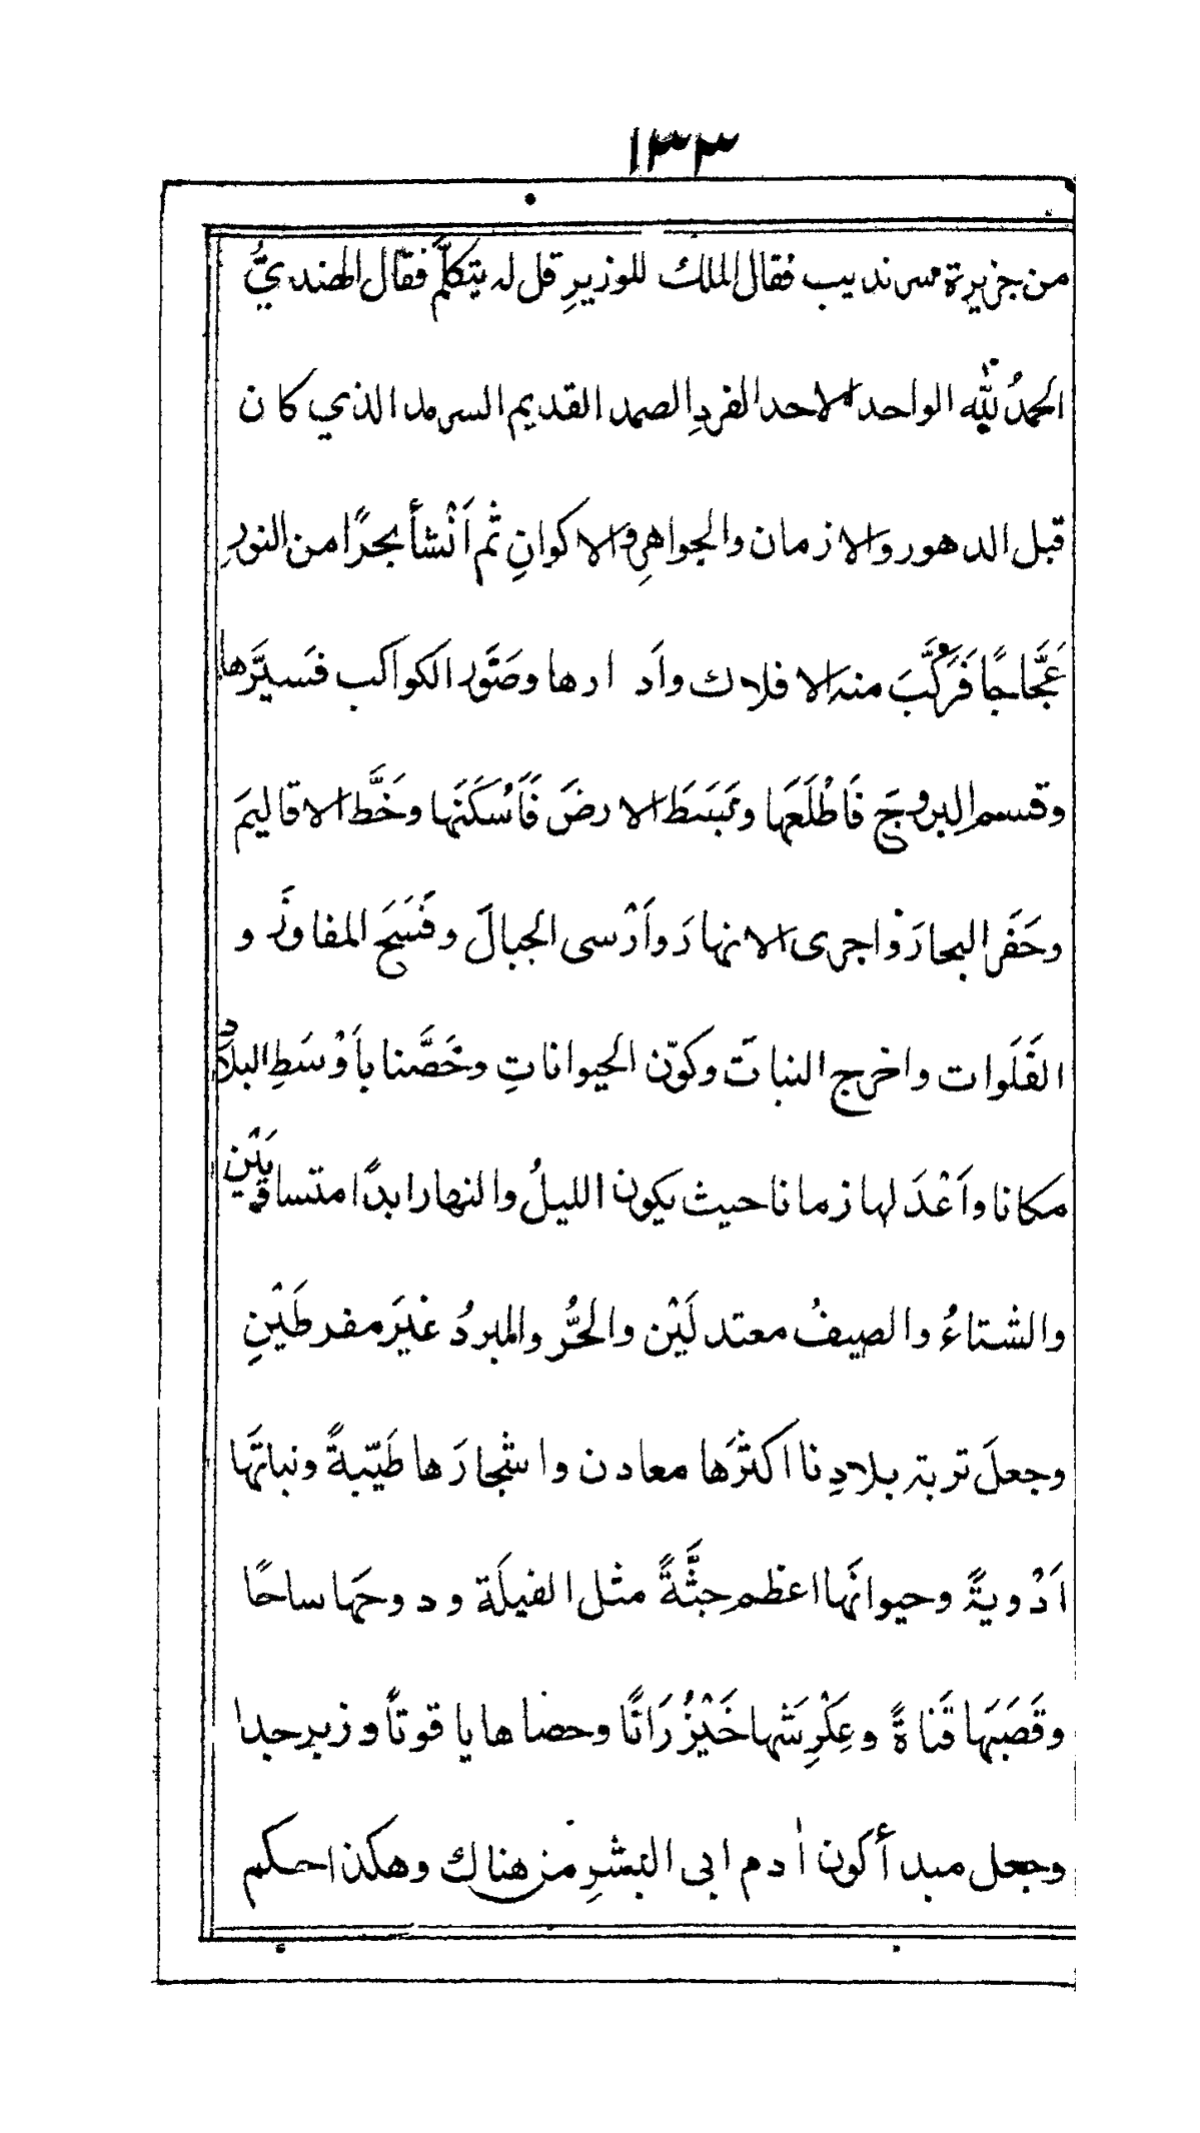 ١٣٣
من جزيرة سرنديب فقال الملك للوزيرِ قل له يتكلَّم فقال الهنديُّ
الحمدُ للّٰه الواحد الاحد الفردِ الصمد القديم السرمد الذي كان
قبل الدهور والازمان والجواهرِ والاكوانِ ثم اَنْشأ بحرًا من النورِ
عَجَّاجًا فَرَكَّبَ منه الافلاك واَدارها وصَوَّر الكواكب فسيَّرها
وقسم البروجَ فَاَطْلَعَها وبَسَطَ الارضَ فَاَسْكَنَها وخَطَّ الاقاليمَ
وحَفَر البحارَ واجرى الانهارَ واَرْسى الجبالَ وفَسَحَ المفاوزَ و
الفَلَوات واخرج النباتَ وكوّن الحيواناتِ وخَصَّنا باَوْسَطِ البلادِ
مكانا واَعْدَلها زمانا حيث يكون الليلُ والنهار ابدًا متساويَيْن
والشتاءُ والصيفُ معتدلَيْن والحَرُّ والبردُ غيرَ مفرطَيْنِ
وجعلَ تربة بلادِنا اكثرَها معادن واشجارَها طَيّبةً ونباتَها
اَدْويةً وحيوانَها اعظم جثَّةً مثل الفيلَة ودوحَها ساحًا
وقَصَبَها قَناةً وعِكْرِشَها خَيْزُرَانًا وحصاها ياقوتاً وزبرجدا
وجعل مبدأ كون اٰدم ابى البشرِ من هناك وهكذا حكم